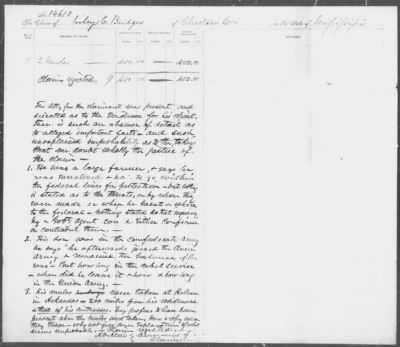 No 14610
The Claim of Bridges of Choctaw Co. in the State of Mississippi
NATURE OF CLAIM
1 2 Mules 400.00 400.00
Claim rejected. 400.00 400.00
The atty. for the claimant was present, and
directed as to the evidence for his client.
There is such an absence of detail as
to alleged important facts and such
unexplained improbability as to the taking
that we doubt wholly the justice of
the claim —
1. He was a large farmer, & says he
was threatened & had to go within
the federal lines for protection – but nothing
is stated as to the threats, or by whom they
were made or when he went or where
to the federal – nothing stated so that inquiry
by a Govt. agent could either confirm
or contradict them. —
2. His son was in the Confederate army
he says he afterwards joined the Union
army & remained the balance of the
war – But how long in the rebel service
– when did he leave it & how long
in the Union Army. —
3. His mules were taken at Helena
in Arkansas – 200 miles from his residence
& that of his witnesses. They profess to have been
present when the mules were taken, How & why were
they there – why not give some explanation of what
seems improbable. – Claim rejected. –
Commrs. of
Claims